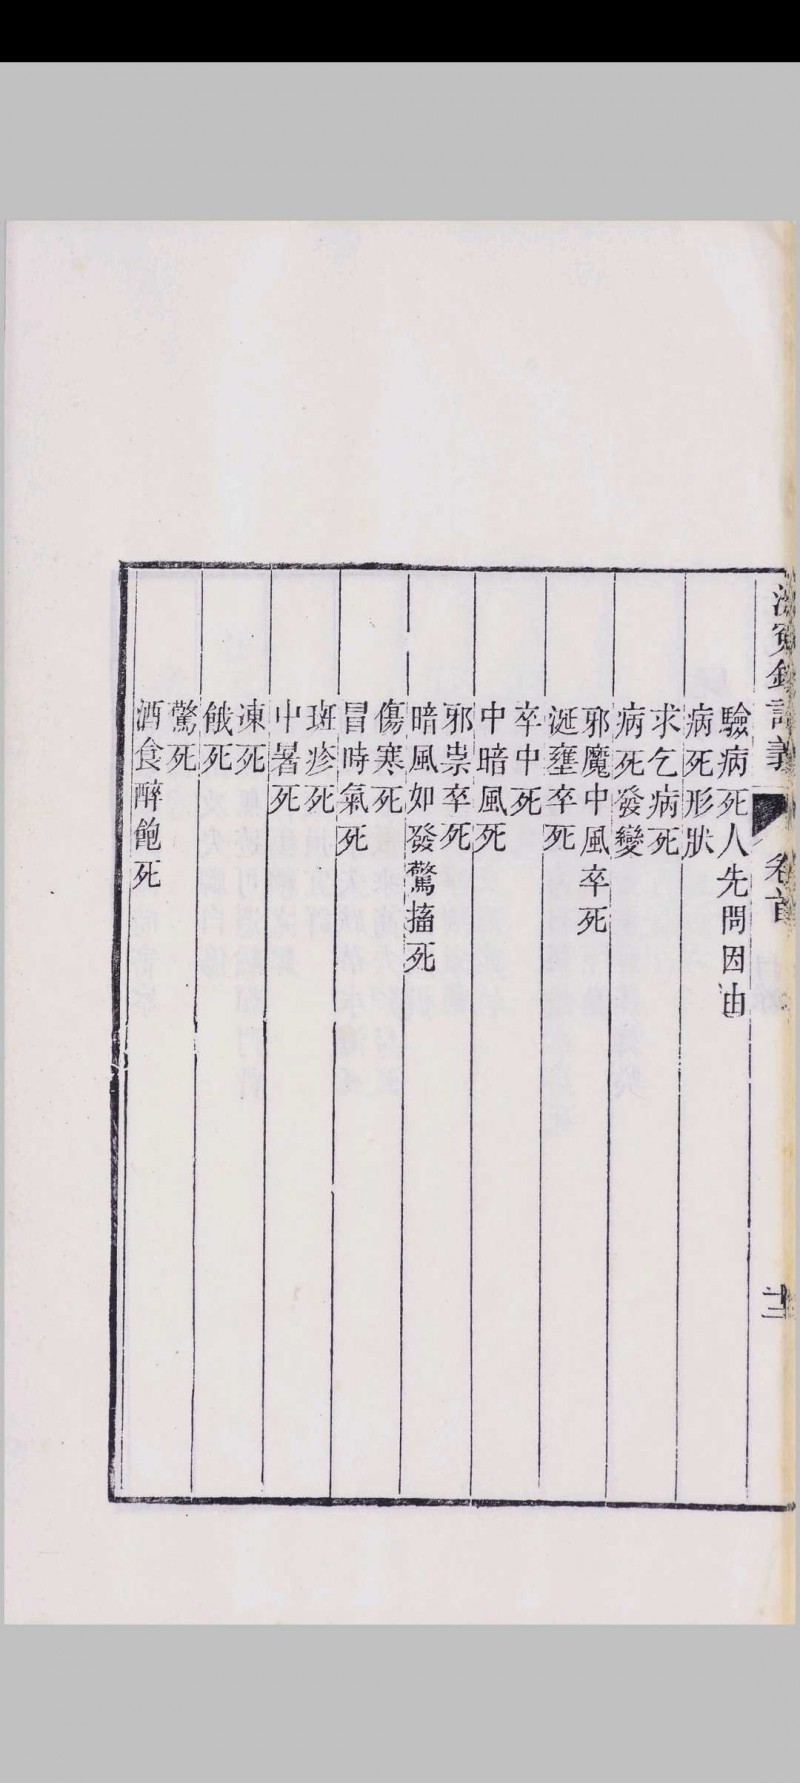 洗冤錄詳義
卷首
驗病死人先問因由
病死形狀
求乞病死
病死發變
邪魔中風卒死
涎壅卒死
卒中死
中暗風死
邪祟卒死
暗風如發驚搐死
傷寒死
冒時氣死
斑疹死
中暑死
凍死
餓死
驚死
酒食醉飽死